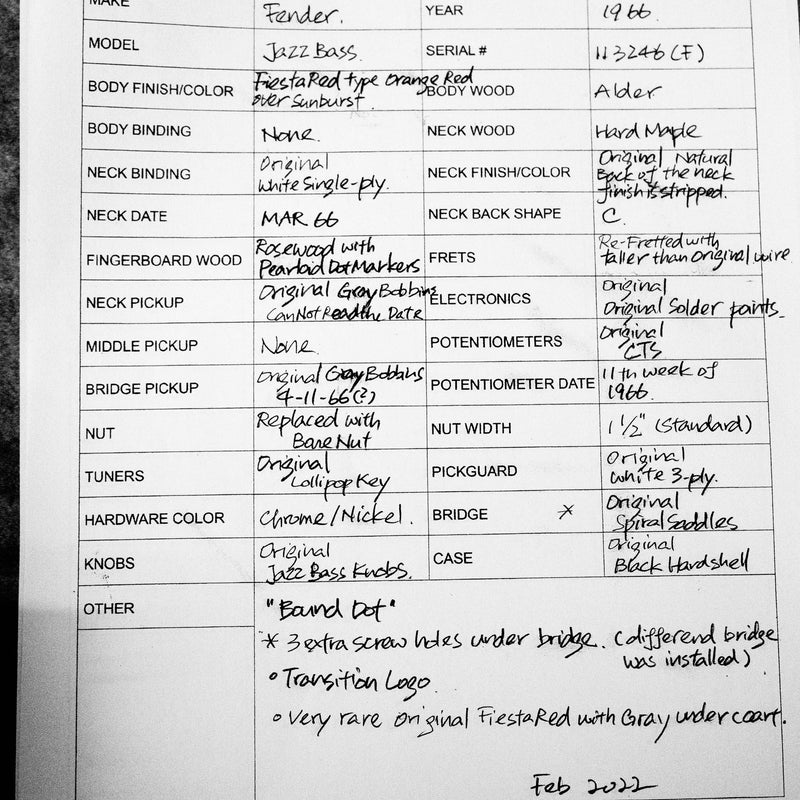 MAKE Fender. YEAR 1966.
MODEL Jazz Bass. SERIAL # 113246 (F)
BODY FINISH/COLOR Fiesta Red type Orange Red BODY WOOD Alder.
over Sunburst.
BODY BINDING None. NECK WOOD Hard Maple
NECK BINDING Original NECK FINISH/COLOR Original Natural
White Single-ply. Back of the neck
finish is stripped.
NECK DATE MAR 66 NECK BACK SHAPE C.
FINGERBOARD WOOD Rosewood with FRETS Re-Fretted with
Pearloid Dot Markers taller than Original wire
NECK PICKUP Original Gray Bobbins ELECTRONICS Original
Can Not Read the Date Original Solder points.
MIDDLE PICKUP None. POTENTIOMETERS Original
CTS
BRIDGE PICKUP Original Gray Bobbins POTENTIOMETER DATE 11th week of
4-11-66(?) 1966.
NUT Replaced with NUT WIDTH 1 1/2" (Standard)
Bone Nut
TUNERS Original PICKGUARD Original
Lollipop Key White 3-ply.
HARDWARE COLOR Chrome/Nickel. BRIDGE * Original
Spiral Saddles
KNOBS Original CASE Original
Jazz Bass Knobs. Black Hardshell
OTHER "Bound Dot"
* 3 extra screw holes under bridge. (differend bridge
was installed)
• Transition Logo.
• Very rare Original Fiesta Red with Gray under coart.
Feb 2022